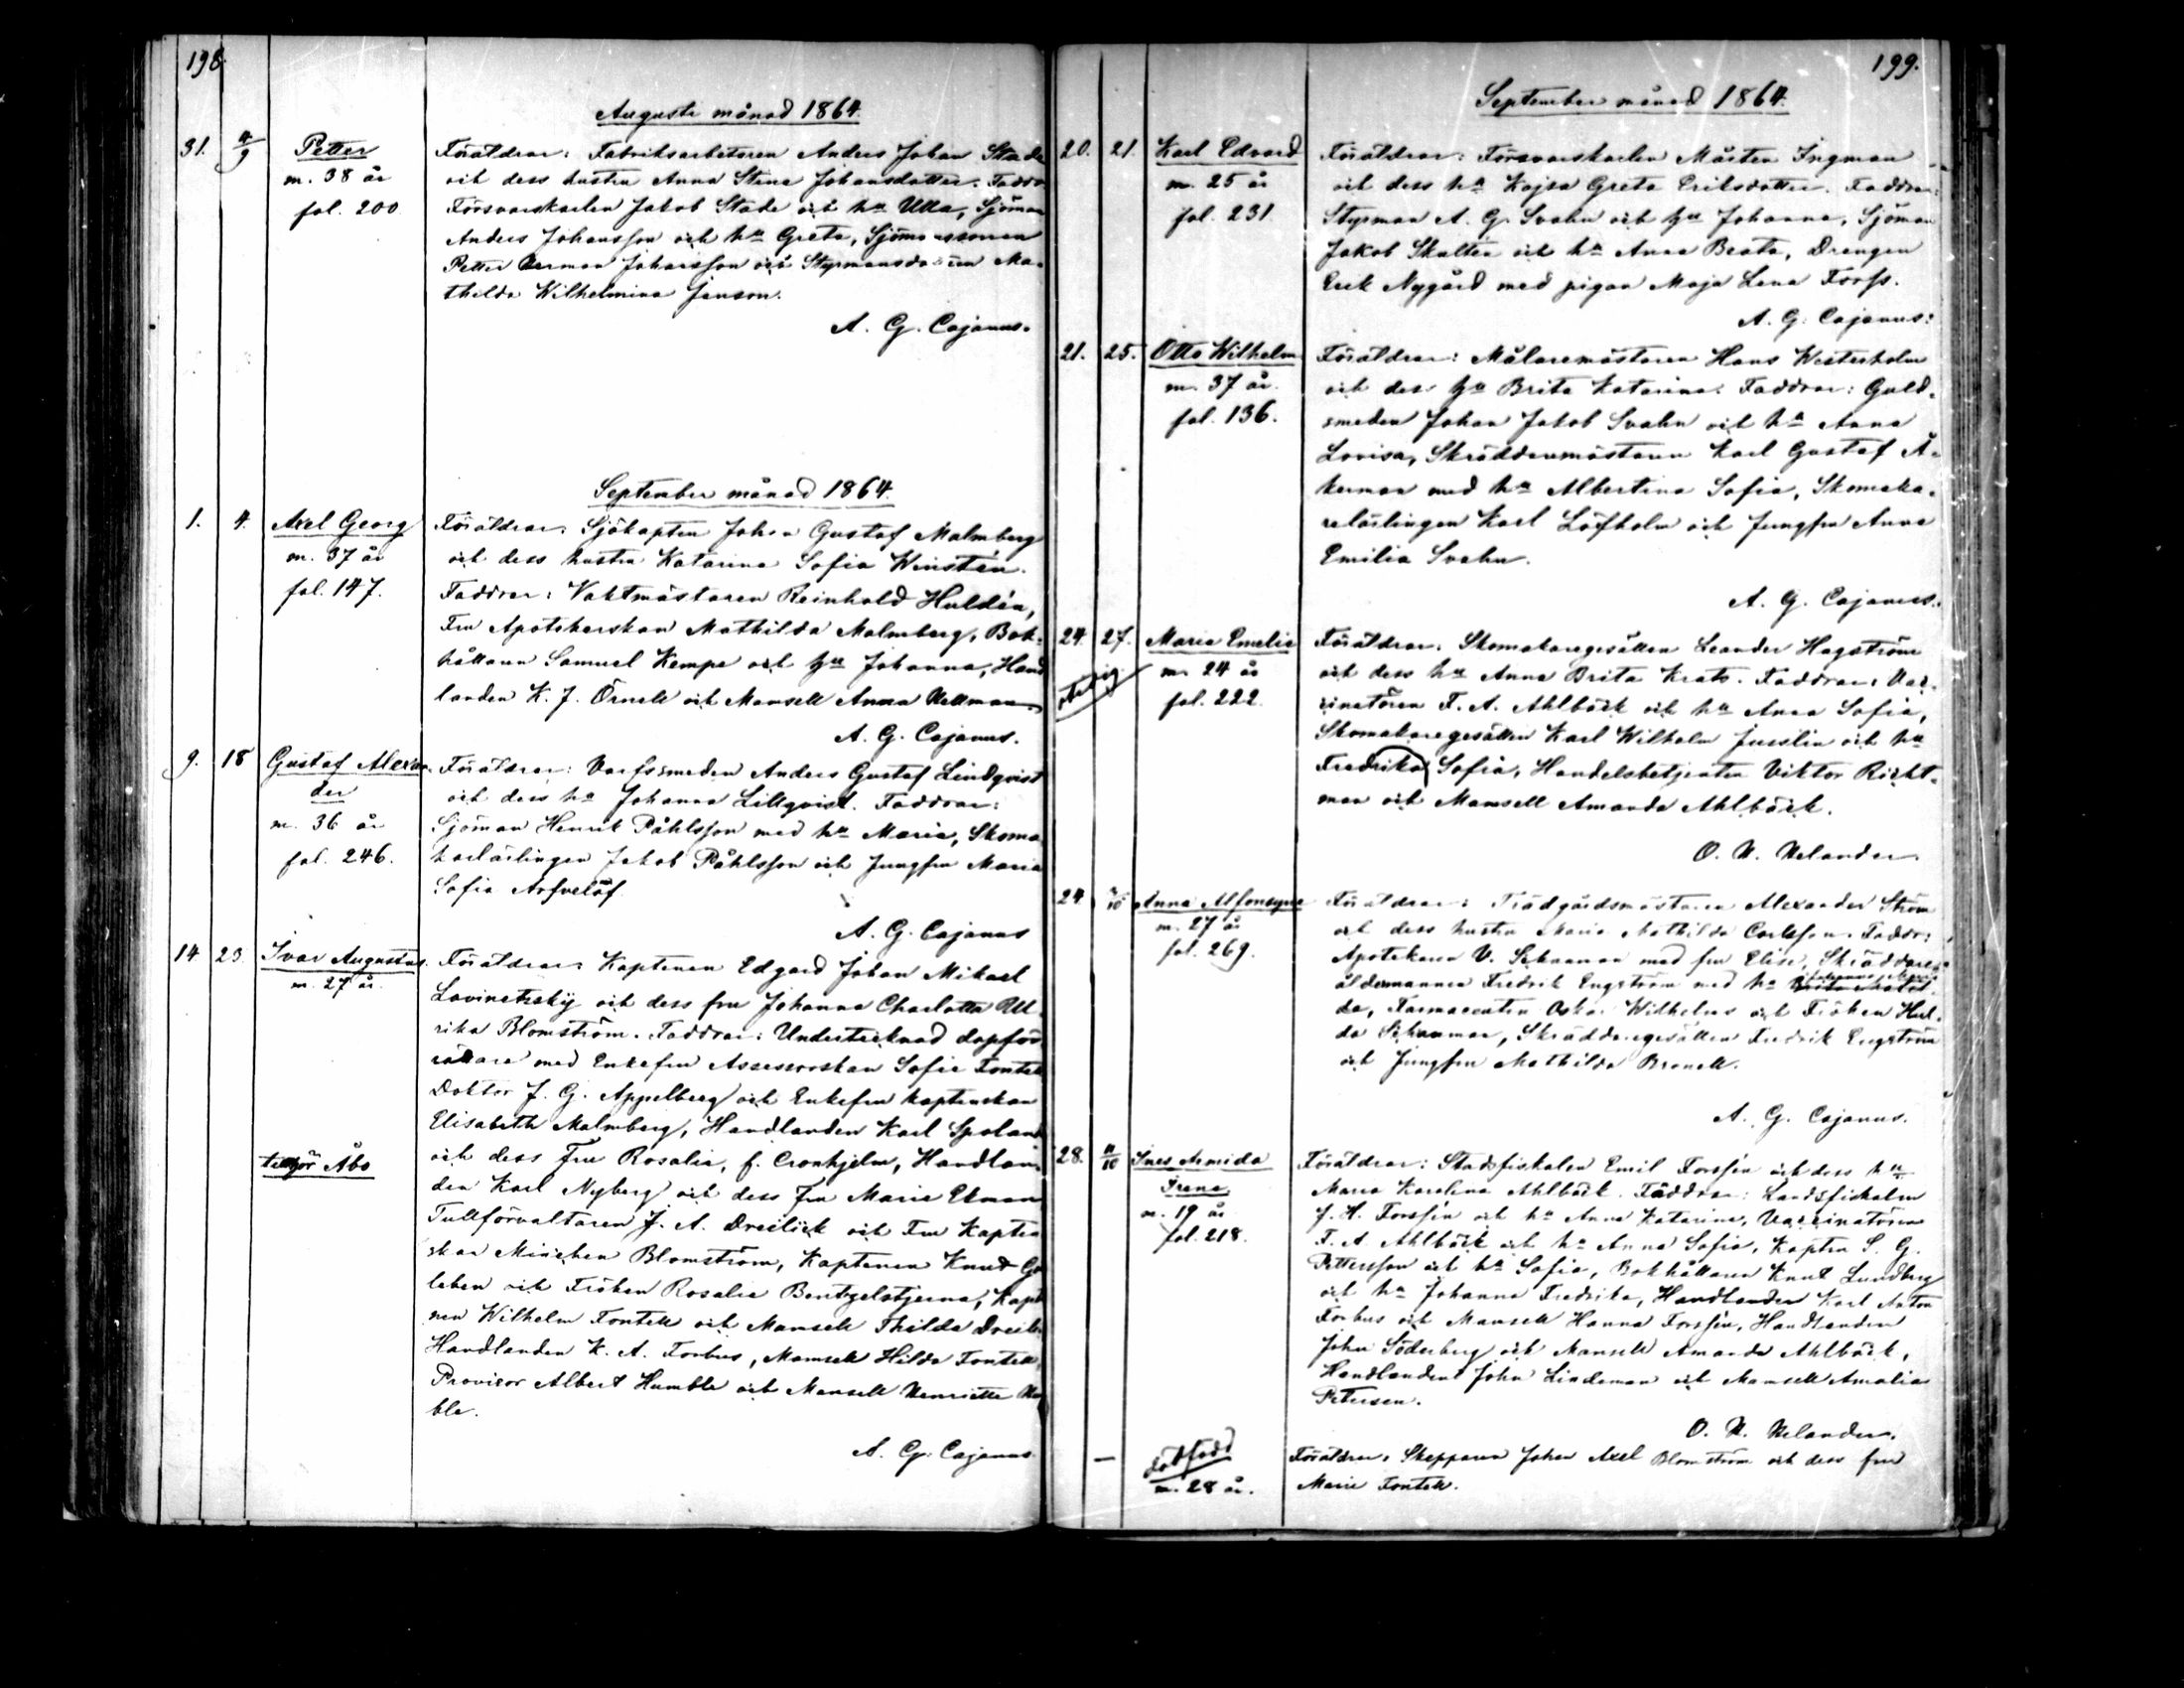 198.
Augusti månad 1864.
31. 4/9 Petter Föräldrar: Fabriksarbetaren Anders Johan Stade
m. 38 år och dess hustru Anna Stina Johansdotter. Faddr.
fol. 200 Försvarskarlen Jakob Stade och hu Ulla, Sjöman
Anders Johansson och hu Greta, Sjömanssonen
Petter Herman Johansson och Styrmansdottren Ma-
thilda Wilhelmina Janson.
A. G. Cajanus.
September månad 1864.
1. 4. Axel Georg Föräldrar: Sjökapten Johan Gustaf Malmberg
m. 37 år och dess hustru Katarina Sofia Winstén.
fol. 147. Faddrar: Vaktmästaren Reinhold Huldén,
Fru Apothekerskan Mathilda Malmberg, Bok-
hållaren Samuel Kempe och hu Johanna, Hand
landen K. J. Örnell och Mamsell Anna Hellman
A. G. Cajanus.
9. 18 Gustaf Alexan- Föräldrar: Varfssmeden Anders Gustaf Lindqvist
der och dess hu Johanna Lillqvist. Faddrar:
m. 36 år Sjöman Henrik Påhlsson med hu Maria, Skoma
fol. 246. karlärlingen Jakob Påhlsson och Jungfru Maria
Sofia Arfvelöf
A. G. Cajanus
14 23 Ivar Augustus Föräldrar: Kaptenen Edgard Johan Mikael
m. 27 år. Lavinetzkij och dess fru Johanna Charlotta Ul
rika Blomström. Faddrar: Undertecknad dopför
rättare med Enkefru Assessorskan Sofie Fontell
Doktor J. G. Appelberg och Enkefru Kaptenskan
Elisabeth Malmberg, Handlanden Karl Spolan
tillhör Åbo och dess Fru Rosalie, f. Cronhjelm, Handlan
den Karl Nyberg och dess Fru Maria Ekman
Tullförvaltaren J. A. Dreilick och Fru Kapten
skan Minchen Blomström, Kaptenen Knud Go
leben och Fröken Rosalie Bentzelstjerna, Kapt
nen Wilhelm Fontell och Mamsell Thilda Dreili
Handlanden K. A. Forbus, Mamsell Hilda Fontell,
Provisor Albert Humble och Mamsell Henriette Hu
ble.
A. G. Cajanus
199.
September månad 1864.
20. 21. Karl Edvard Föräldrar: Försvarskarlen Mårten Ingman
m. 25 år och dess hu Kajsa Greta Eriksdotter. Faddrar:
fol. 231 Styrman A. G. Svahn och hu Johanna, Sjöman
Jakob Skulten och hu Anna Beata, Drengen
Erik Nygård med pigan Maja Lena Forss.
A. G. Cajanus.
21. 25. Otto Wilhelm Föräldrar: Målaremästaren Hans Westerholm
m. 37 år. och dess hu Brita Katarina. Faddrar: Guld-
fol. 136. smeden Johan Jakob Svahn och hu Anna
Lovisa, Skräddaremästaren Karl Gustaf Å-
kerman med hu Albertina Sofia, Skomaka-
relärlingen Karl Löfholm och Jungfru Anna
Emilia Svahn.
A. G. Cajanus.
24. 27. Maria Emelie Föräldrar: Skomakaregesällen Leander Hagström
m. 24 år och dess hu Anna Brita Krats. Faddrar: Vac-
fol. 222 cinatören F. A. Ahlbäck och hu Anna Sofia,
Skomakaregesällen Karl Wilhelm Juselin och hu
Fredrika Sofia, Handelsbetjenten Viktor Richt-
man och Mamsell Amanda Ahlbäck.
O. N. Helander
24. /10 Anna Alfonsyna Föräldrar: Trädgårdsmästaren Alexander Ström
m. 27 år och dess hustru Maria Mathilda Carlsson. Faddr:
fol. 269. Apotekaren V. Schauman med fru Elise, Skräddare
åldermannen Fredrik Engström med hu
da, Farmaceuten Oskar Wilhelms och Fröken Hul-
da Schauman, Skräddaregesällen Fredrik Engström
och Jungfru Mathilda Brunell.
A. G. Cajanus.
28. /10 Ines Armida Föräldrar: Stadsfiskalen Emil Forssén och dess hu
Irene Maria Karolina Ahlbäck. Faddrar: Landsfiskalen
m. 19 år J. H. Forssén och hu Anna Katarina, Vaccinatören
fol. 218. F. A. Ahlbäck och hu Anna Sofia, Kapten S. G.
Pettersson och hu Sofia, Bokhållaren Knut Lundberg
och hu Johanna Fredrika, Handlanden Karl Anton
Forbus och Mamsell Hanna Forssén, Handlanden
John Söderberg och Mamsell Amanda Ahlbäck,
Handlanden John Lindeman och Mamsell Amalia
Petersen.
O. N. Helander.
— dödfödd Föräldrar: Skepparen Johan Axel Blomström och dess fru
m. 28 år. Maria Fontell.